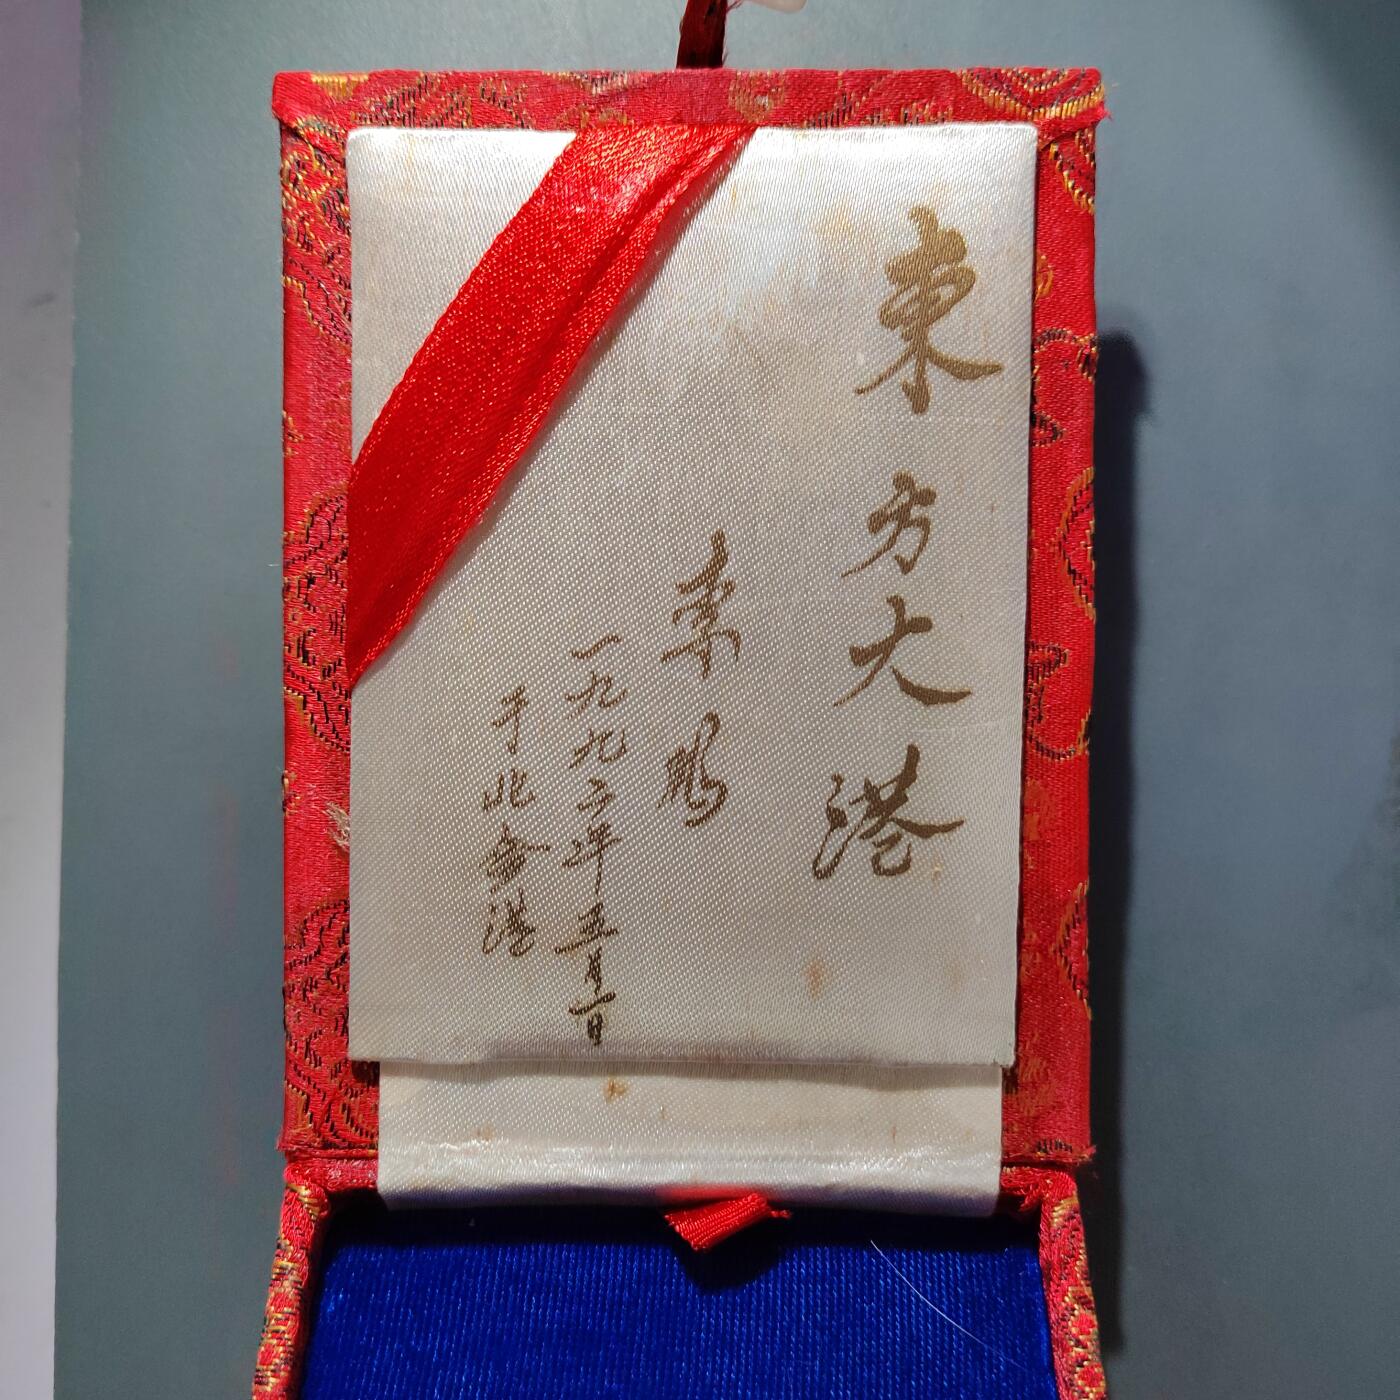 東方大港
李鹏
一九九二年五月一日
于北侖港